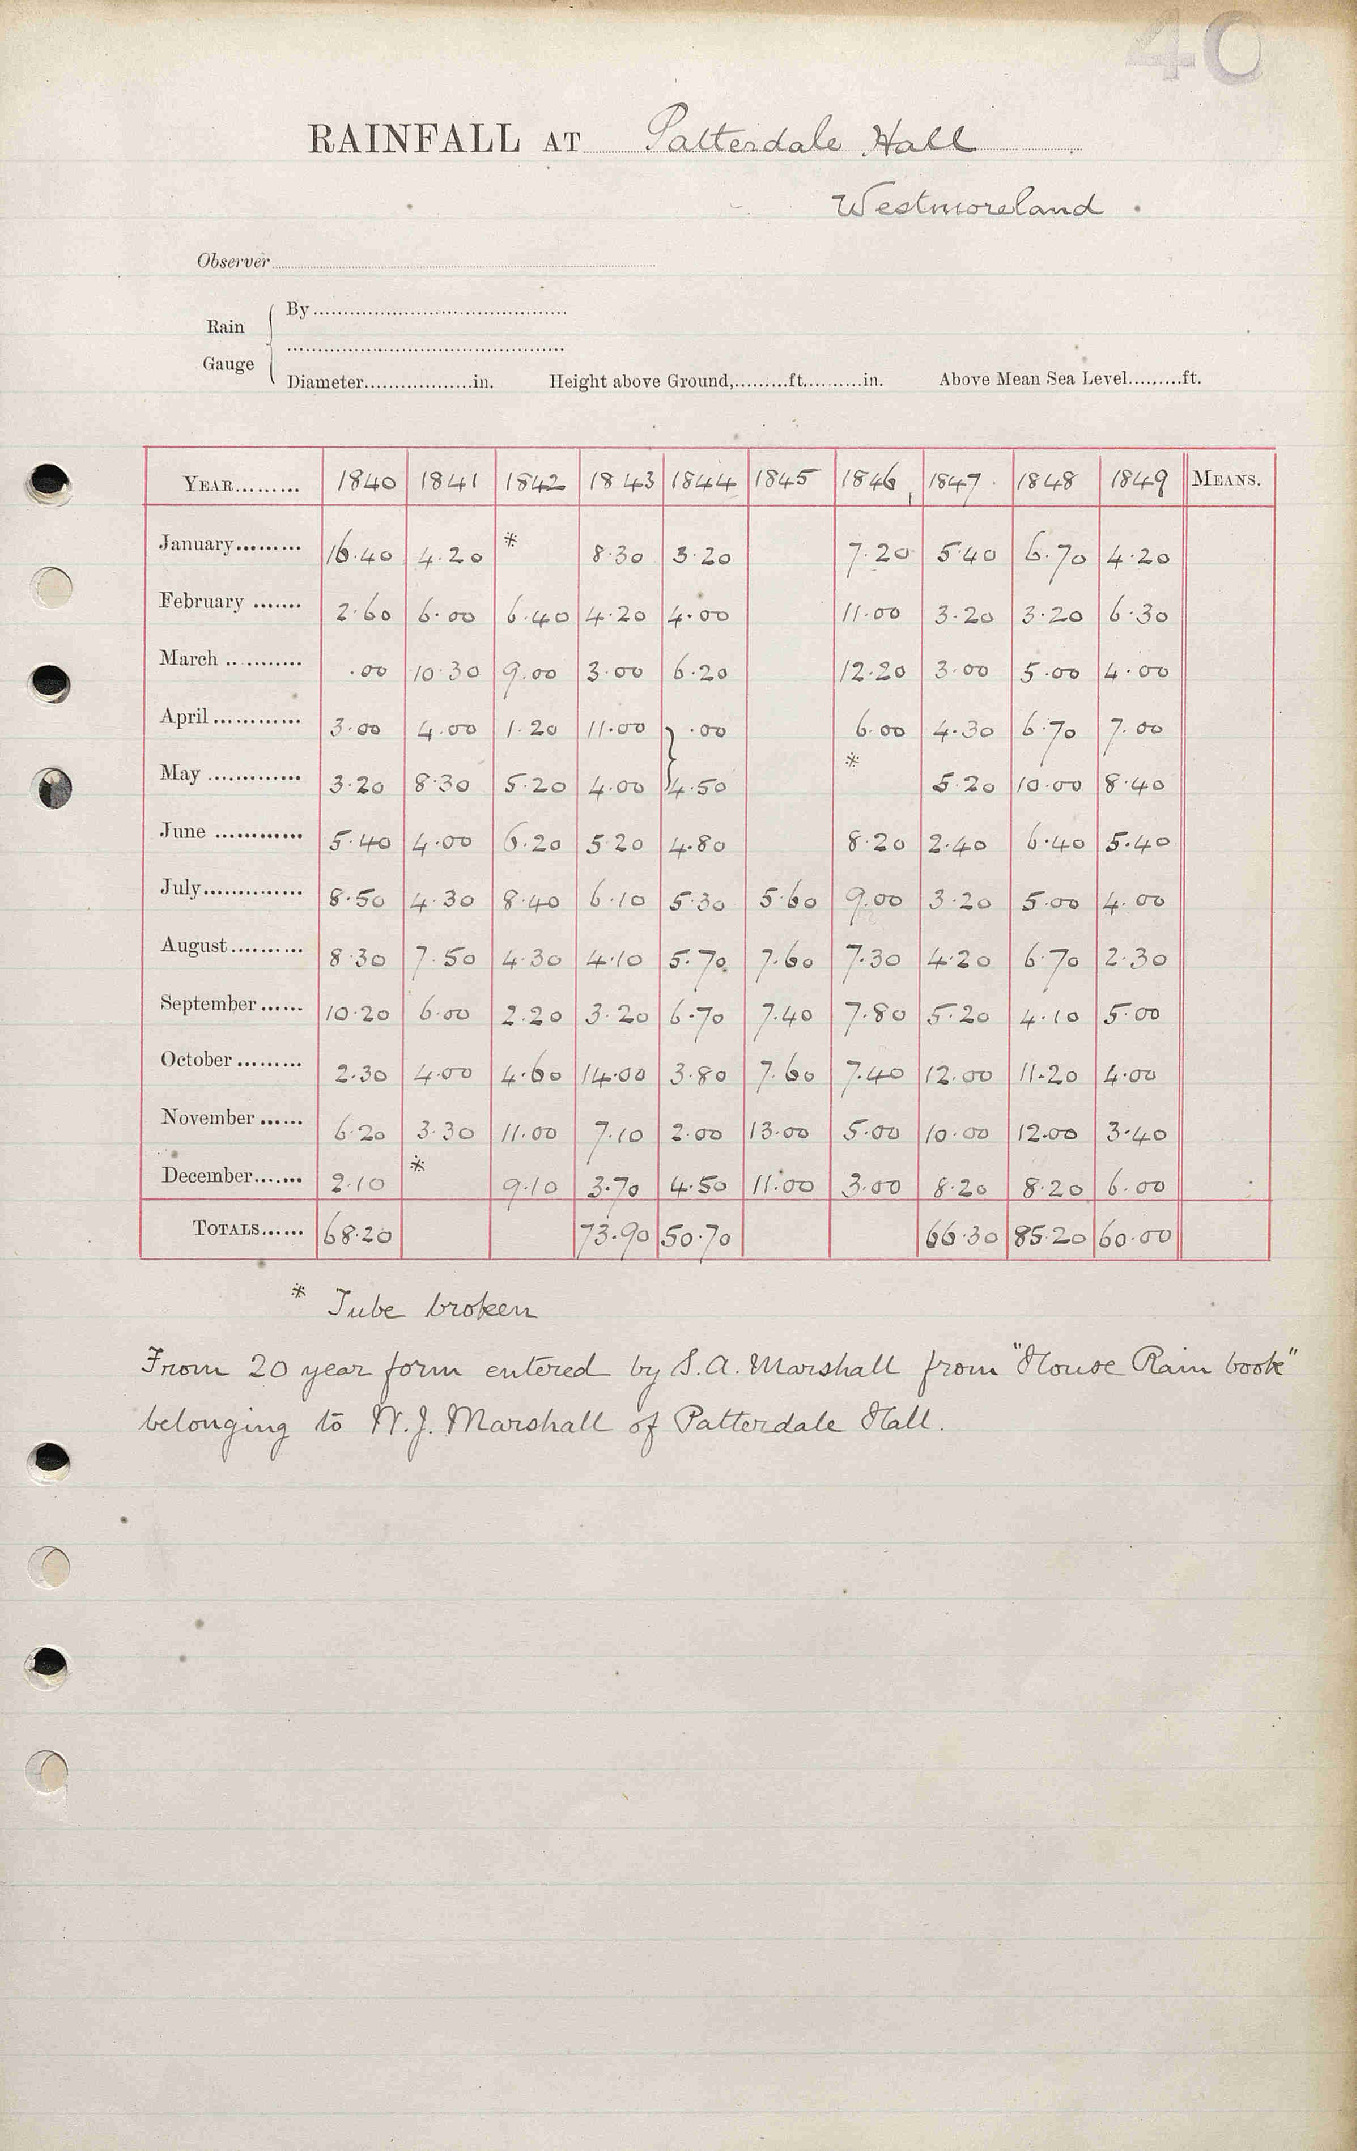 40
RAINFALL AT Patterdale Hall
Westmoreland.
Observer
Rain Gauge { By
Diameter..................in. Height above Ground,.........ft..........in. Above Mean Sea Level.........ft.
YEAR......... 1840 1841 1842 1843 1844 1845 1846 1847 1848 1849 MEANS.
January......... 16.40 4.20 * 8.30 3.20 7.20 5.40 6.70 4.20
February ....... 2.60 6.00 6.40 4.20 4.00 11.00 3.20 3.20 6.30
March ........... .00 10.30 9.00 3.00 6.20 12.20 3.00 5.00 4.00
April............ 3.00 4.00 1.20 11.00 } .00 6.00 4.30 6.70 7.00
May ............. 3.20 8.30 5.20 4.00 4.50 * 5.20 10.00 8.40
June ............ 5.40 4.00 6.20 5.20 4.80 8.20 2.40 6.40 5.40
July.............. 8.50 4.30 8.40 6.10 5.30 5.60 9.00 3.20 5.00 4.00
August.......... 8.30 7.50 4.30 4.10 5.70 7.60 7.30 4.20 6.70 2.30
September ...... 10.20 6.00 2.20 3.20 6.70 7.40 7.80 5.20 4.10 5.00
October ......... 2.30 4.00 4.60 14.00 3.80 7.60 7.40 12.00 11.20 4.00
November ...... 6.20 3.30 11.00 7.10 2.00 13.00 5.00 10.00 12.00 3.40
December....... 2.10 * 9.10 3.70 4.50 11.00 3.00 8.20 8.20 6.00
TOTALS...... 68.20 73.90 50.70 66.30 85.20 60.00
* Tube broken
From 20 year form entered by S.A. Marshall from "House Rain book"
belonging to W.J. Marshall of Patterdale Hall.